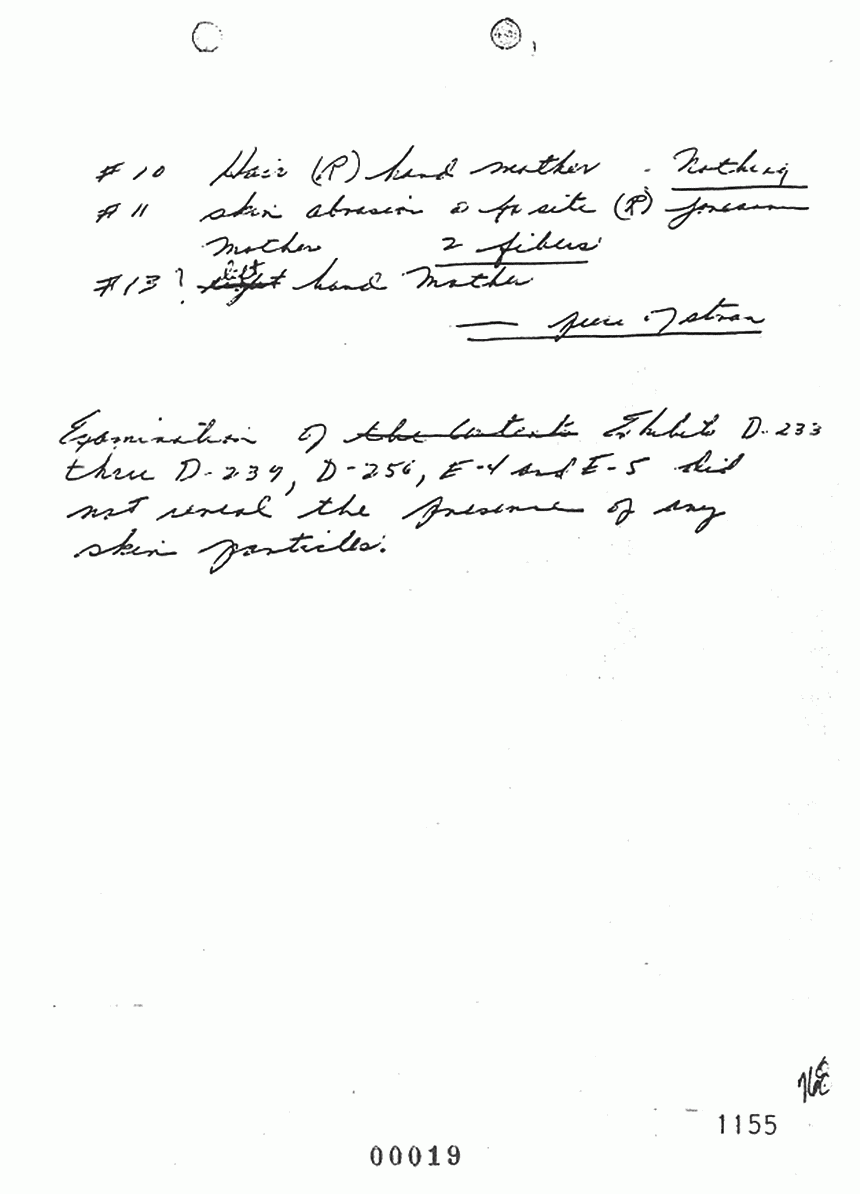 #10 Hair (R) hand mother - Nothing
#11 skin abrasion @ fx site (R) forearm
Mother 2 fibers
left
#13? right hand Mother
— piece of straw
Examination of the contents Exhibits D-233
thru D-239, D-256, E-4 and E-5 did
not reveal the presence of any
skin particles.
1155
00019